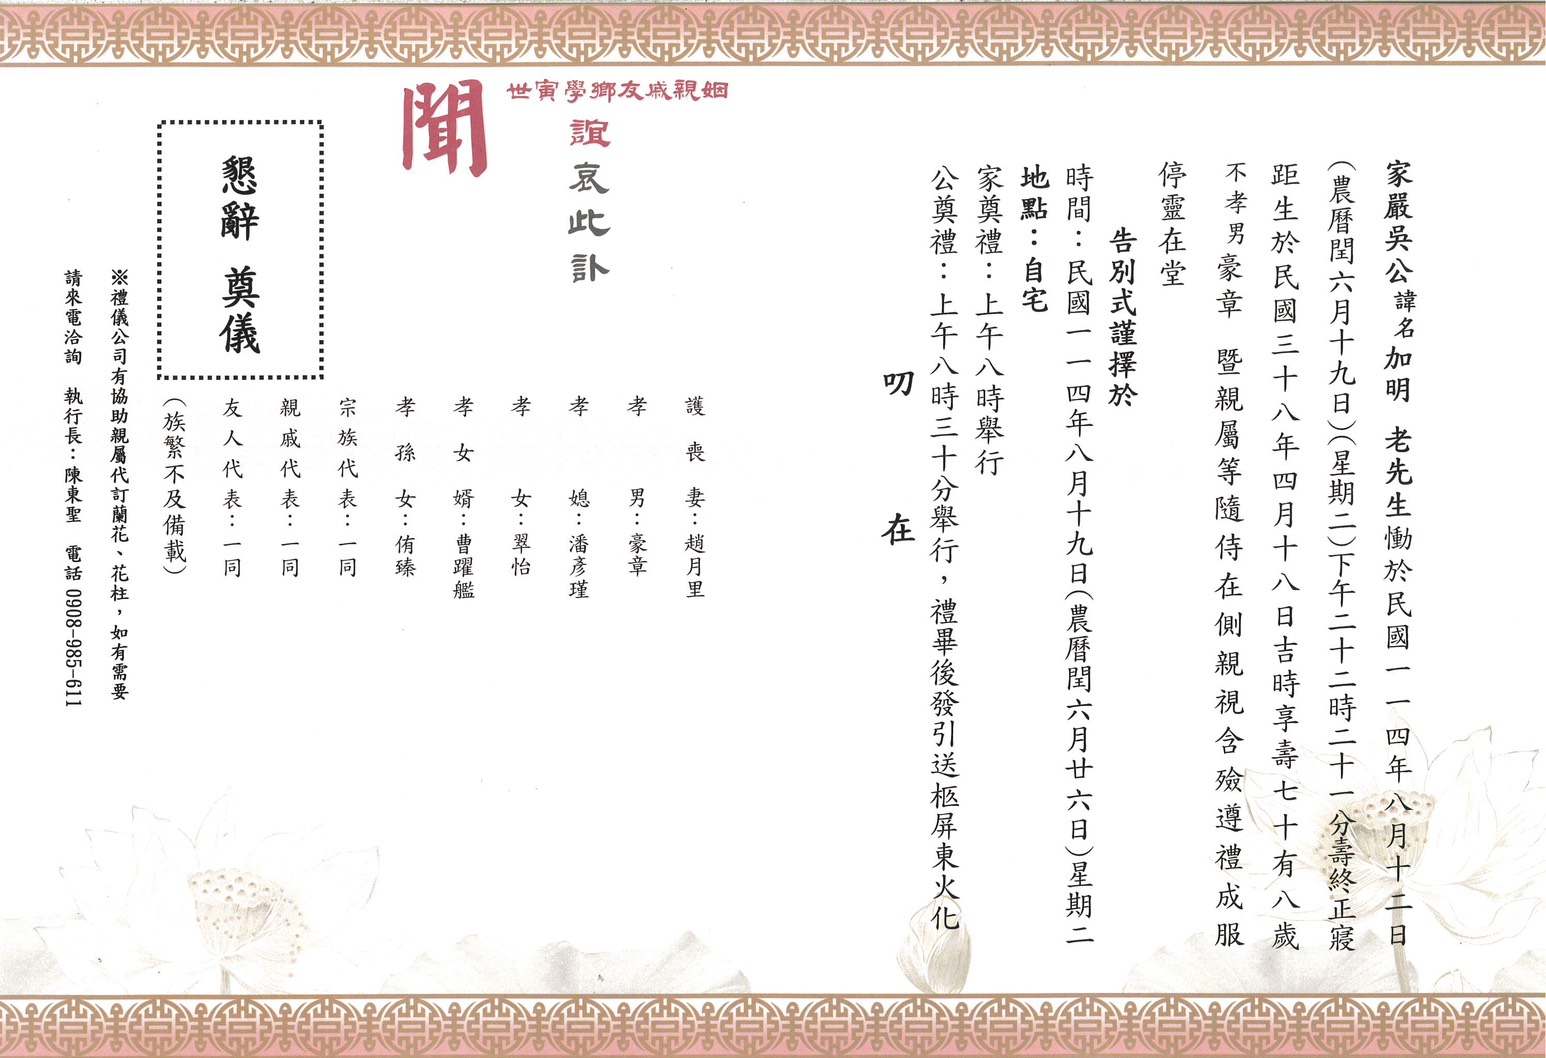 家嚴吳公諱名加明 老先生慟於民國一一四年八月十二日
(農曆閏六月十九日)(星期二)下午二十二時二十一分壽終正寢
距生於民國三十八年四月十八日吉時享壽七十有八歲
不孝男豪章 暨親屬等隨侍在側親視含殮遵禮成服
停靈在堂
告別式謹擇於
時間：民國一一四年八月十九日(農曆閏六月廿六日)星期二
地點：自宅
家奠禮：上午八時舉行
公奠禮：上午八時三十分舉行，禮畢後發引送柩屏東火化
叨 在
姻親戚友鄉學寅世
誼哀此訃
聞
護喪妻：趙月里
孝男：豪章
孝媳：潘彥瑾
孝女：翠怡
孝女婿：曹躍艦
孝孫女：侑臻
宗族代表：一同
親戚代表：一同
友人代表：一同
(族繁不及備載)
懇辭 奠儀
※禮儀公司有協助親屬代訂蘭花、花柱，如有需要
請來電洽詢 執行長：陳東聖 電話 0908-985-611